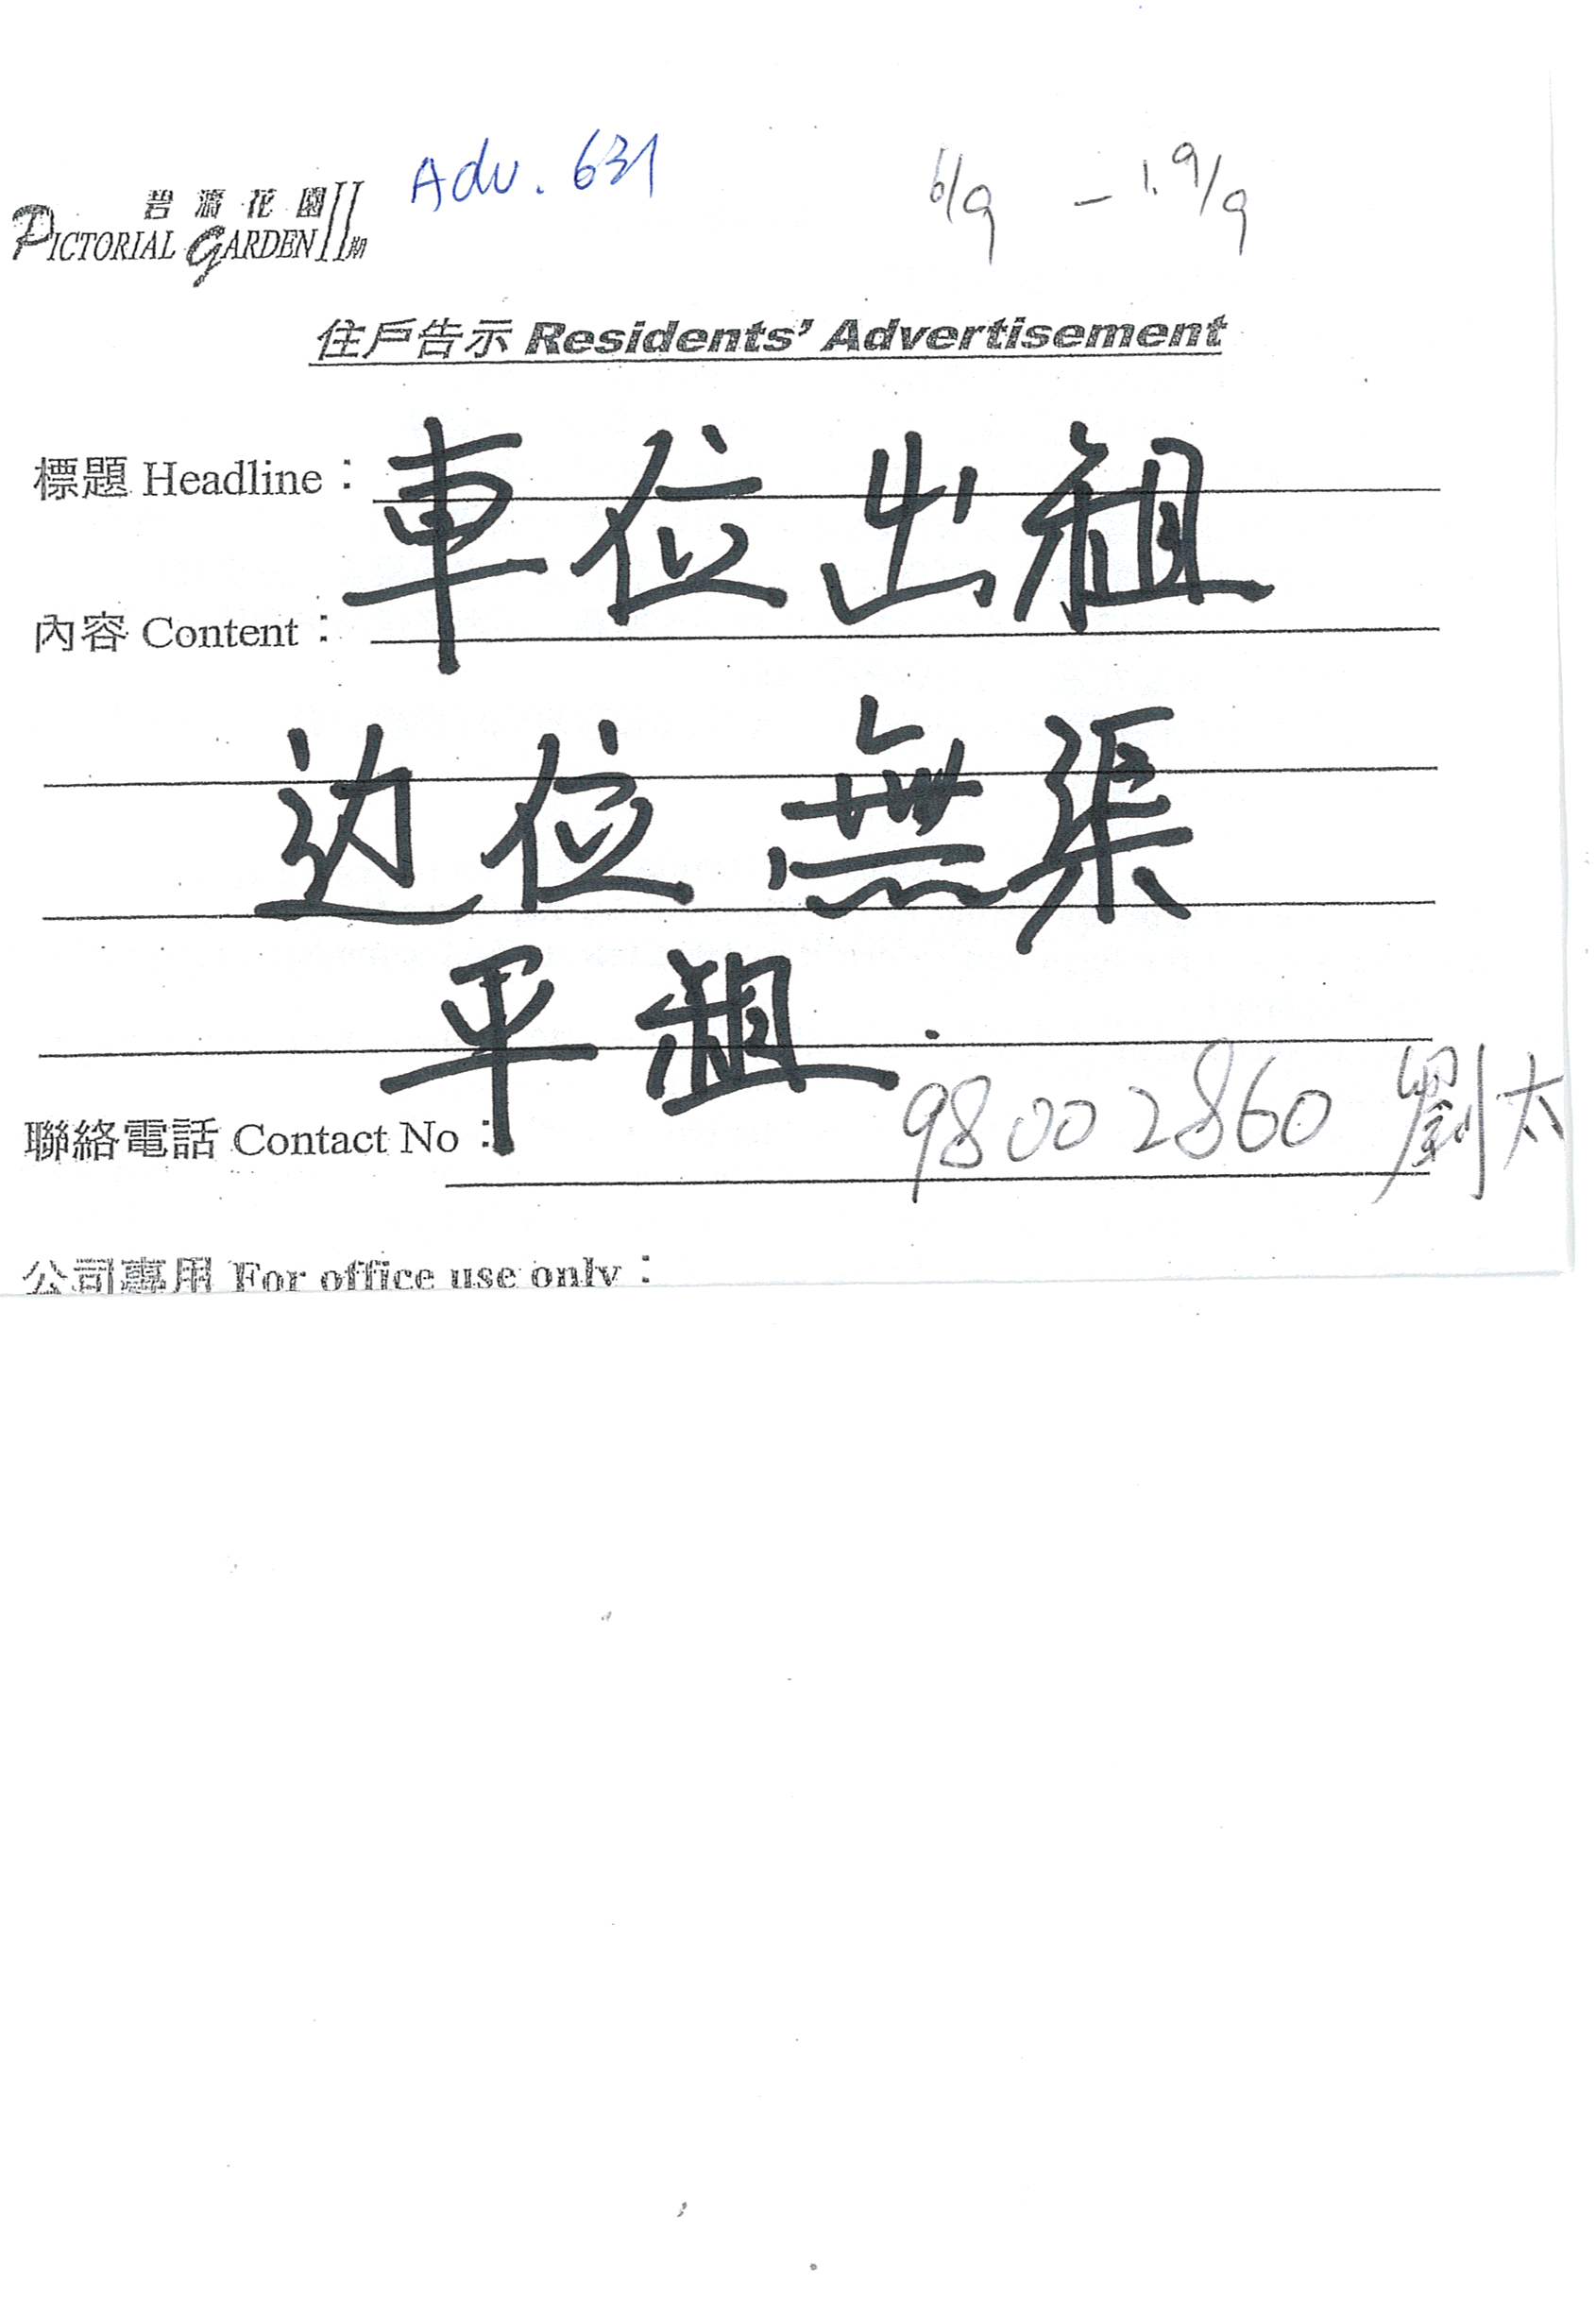 Adv. 631
6/9 - 19/9
碧濤花園II期
PICTORIAL GARDEN
住戶告示 Residents' Advertisement
標題 Headline：車位出租
內容 Content：
边位 無渠
平租.
聯絡電話 Contact No：98002860 劉太
公司專用 For office use only：